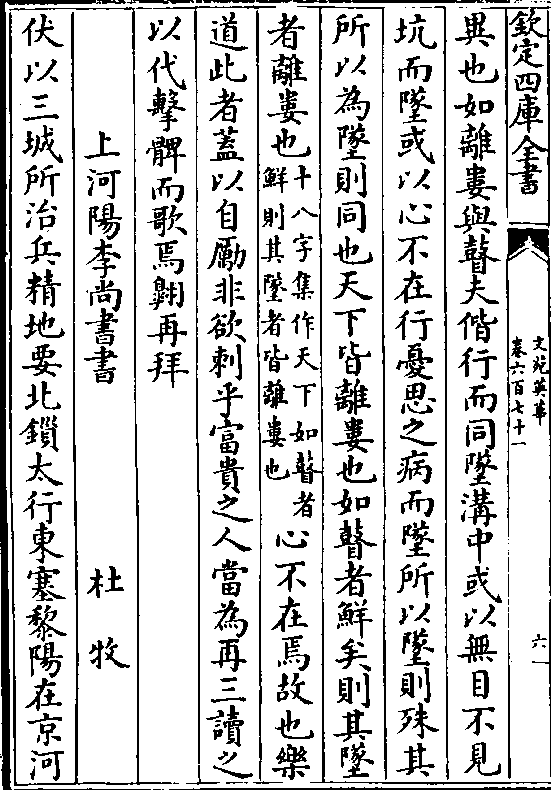 欽定四庫全書
文苑英華
卷六百七十一
六
異也如離婁與瞽夫偕行而同墜溝中或以無目不見
坑而墜或以心不在行憂思之病而墜所以墜則殊其
所以為墜則同也天下皆離婁也如瞽者鮮矣則其墜
者離婁也十八字集作天下如瞽者鮮則其墜者皆離婁也心不在焉故也樂
道此者蓋以自勵非欲刺乎富貴之人當為再三讀之
以代擊髀而歌焉翺再拜
上河陽李尚書書 杜牧
伏以三城所治兵精地要北鎖太行東塞黎陽在京河